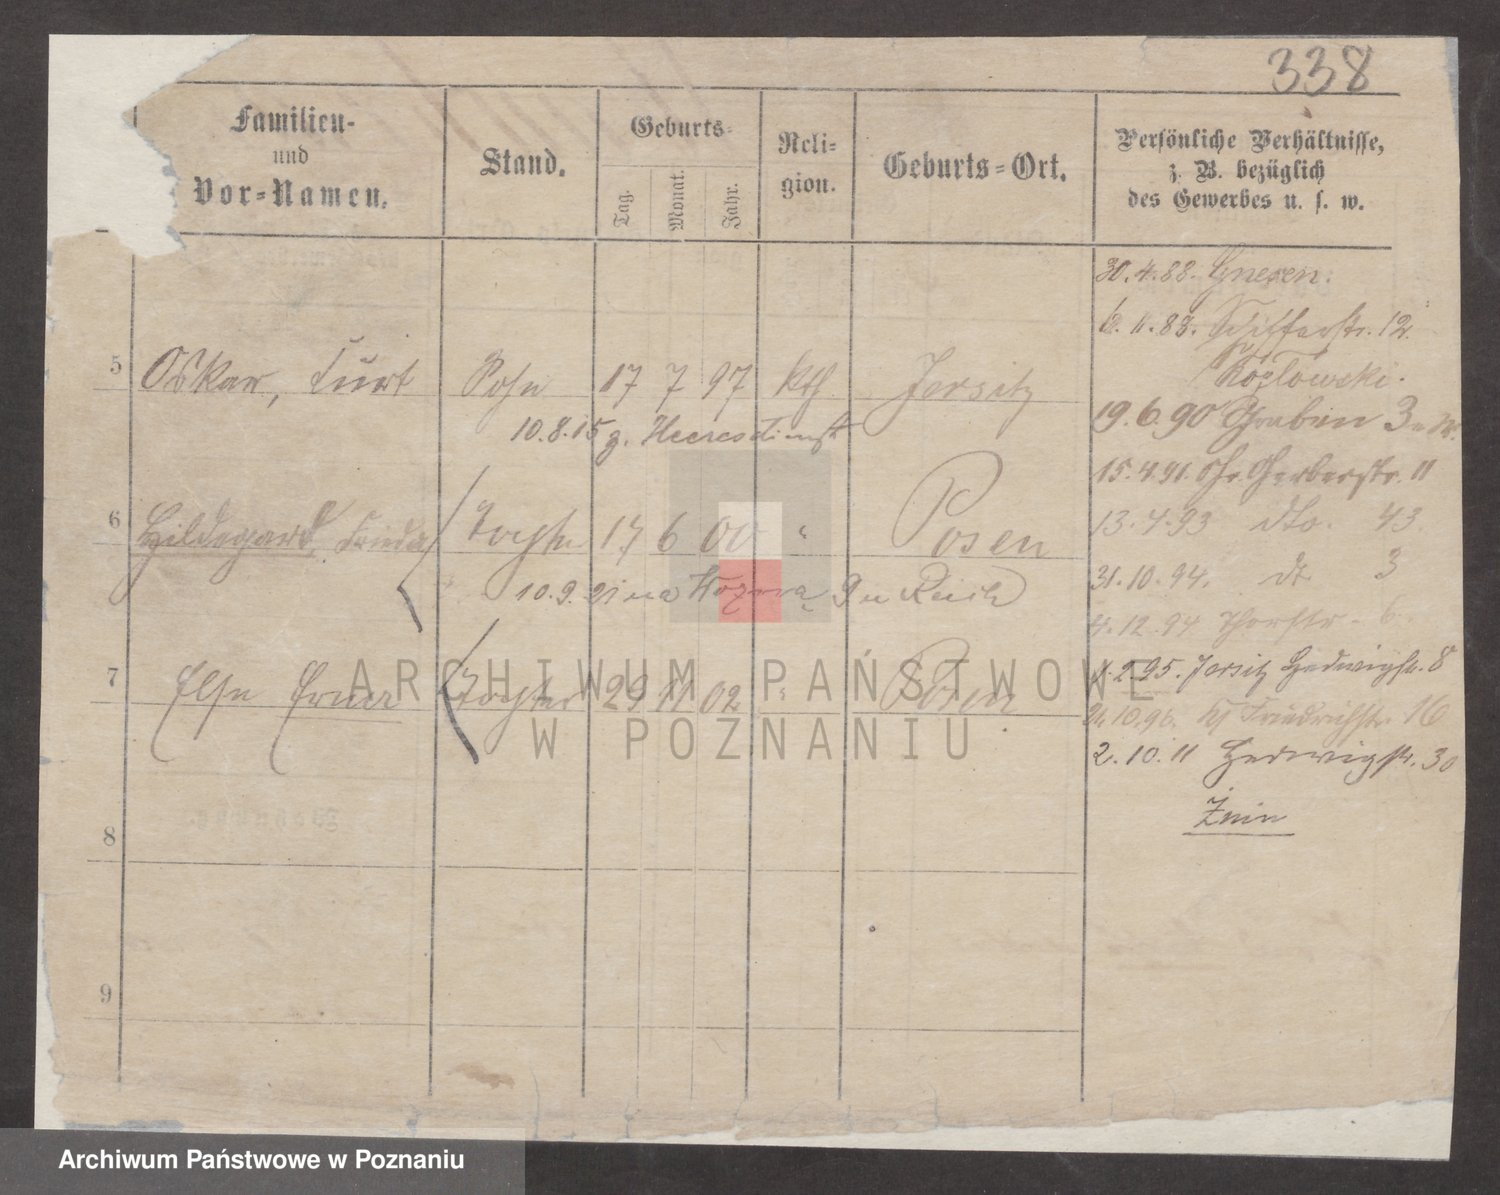 338
Familien- und Vor-Namen.
Stand.
Geburts-
Tag. Monat. Jahr.
Reli-gion.
Geburts-Ort.
Persönliche Verhältnisse,
z. B. bezüglich
des Gewerbes u. s. w.
30.4.88. Gnesen.
Schifferstr. 12.
Kozlowski.
5 Oskar, Curt Sohn 17 7 97 kth. Jersitz
19.6.90 Graben 3
10.8.15 z. Heeresdienst
15.4.91. Gr. Gerberstr. 11
6 Hildegard, Frieda Tochter 17 6 00 " Posen
13.4.93 dto. 43
31.10.94. dt 3
10.9.21 na
4.12.94 Thorstr. 6.
7 Else Erna Tochter 29 11 02 " Posen
2.95. Jersitz Hedwigstr. 8
24.10.96. Friedrichstr. 16
2.10.11 Hedwigstr. 30
Żnin
8
9
ARCHIWUM PAŃSTWOWE
W POZNANIU
Archiwum Państwowe w Poznaniu